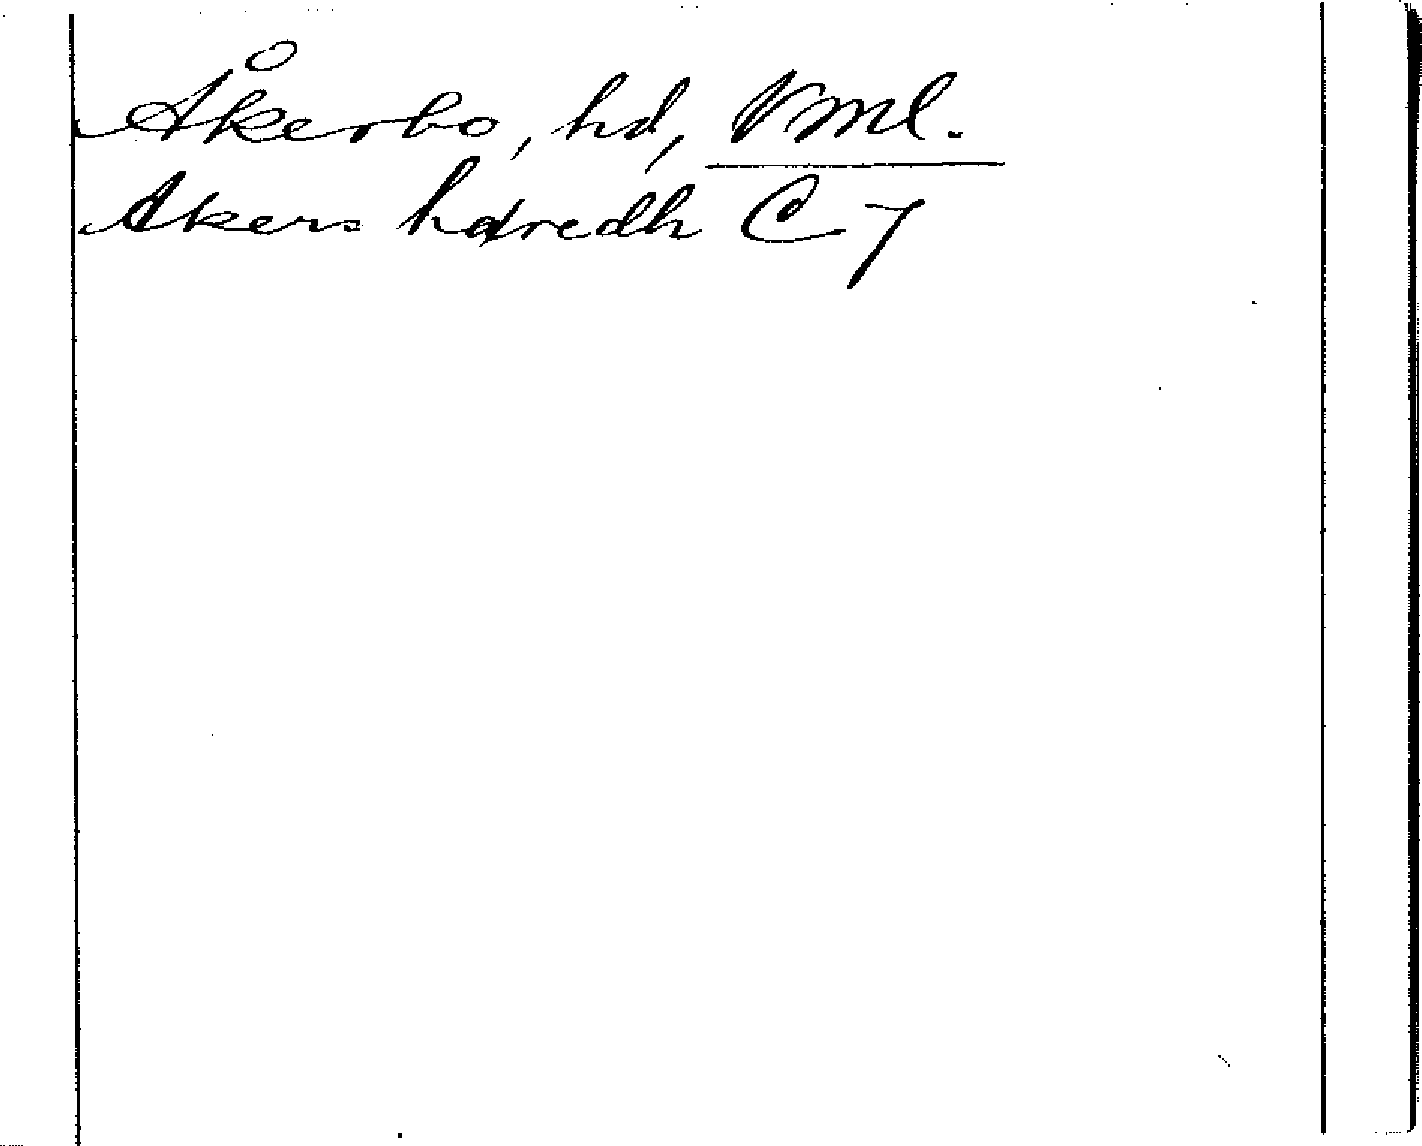 Åkerbo, hd, Vml.
Akers hdredh C 7